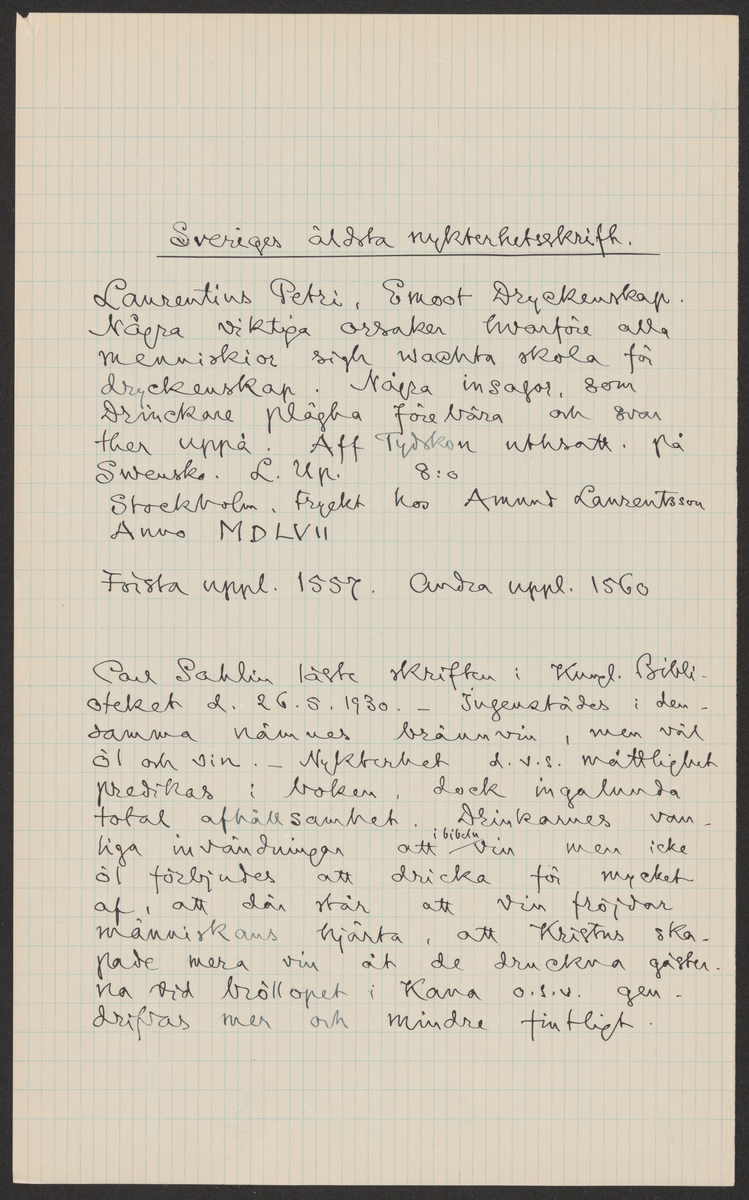 Sveriges äldsta nykterhetsskrift.
Laurentius Petri, Emoot Dryckenskap.
Några viktiga orsaker hwarföre alla
menniskior sigh wachta skola för
dryckenskap. Några insagor, som
Drinckare plägha före bära och svar
ther uppå. Aff Tydskon uthsatt. på
Swensko. L. Up. 8:o
Stockholm, tryckt hos Amund Laurentsson
Anno MDLVII
Första uppl. 1557. Andra uppl. 1560
Carl Sahlin läste skriften i Kungl. Bibli-
oteket d. 26.5.1930. – Ingenstädes i den-
samma nämnes brännvin, men väl
öl och vin. – Nykterhet d.v.s. måttlighet
predikas i boken, dock ingalunda
total afhållsamhet. Drinkarnes van-
liga invändningar att i bibeln vin men icke
öl förbjudes att dricka för mycket
af, att där står att vin fröjdar
människans hjärta, att Kristus ska-
pade mera vin åt de druckna gäster-
na vid bröllopet i Kana o.s.v. gen-
drifvas mer och mindre fintligt.